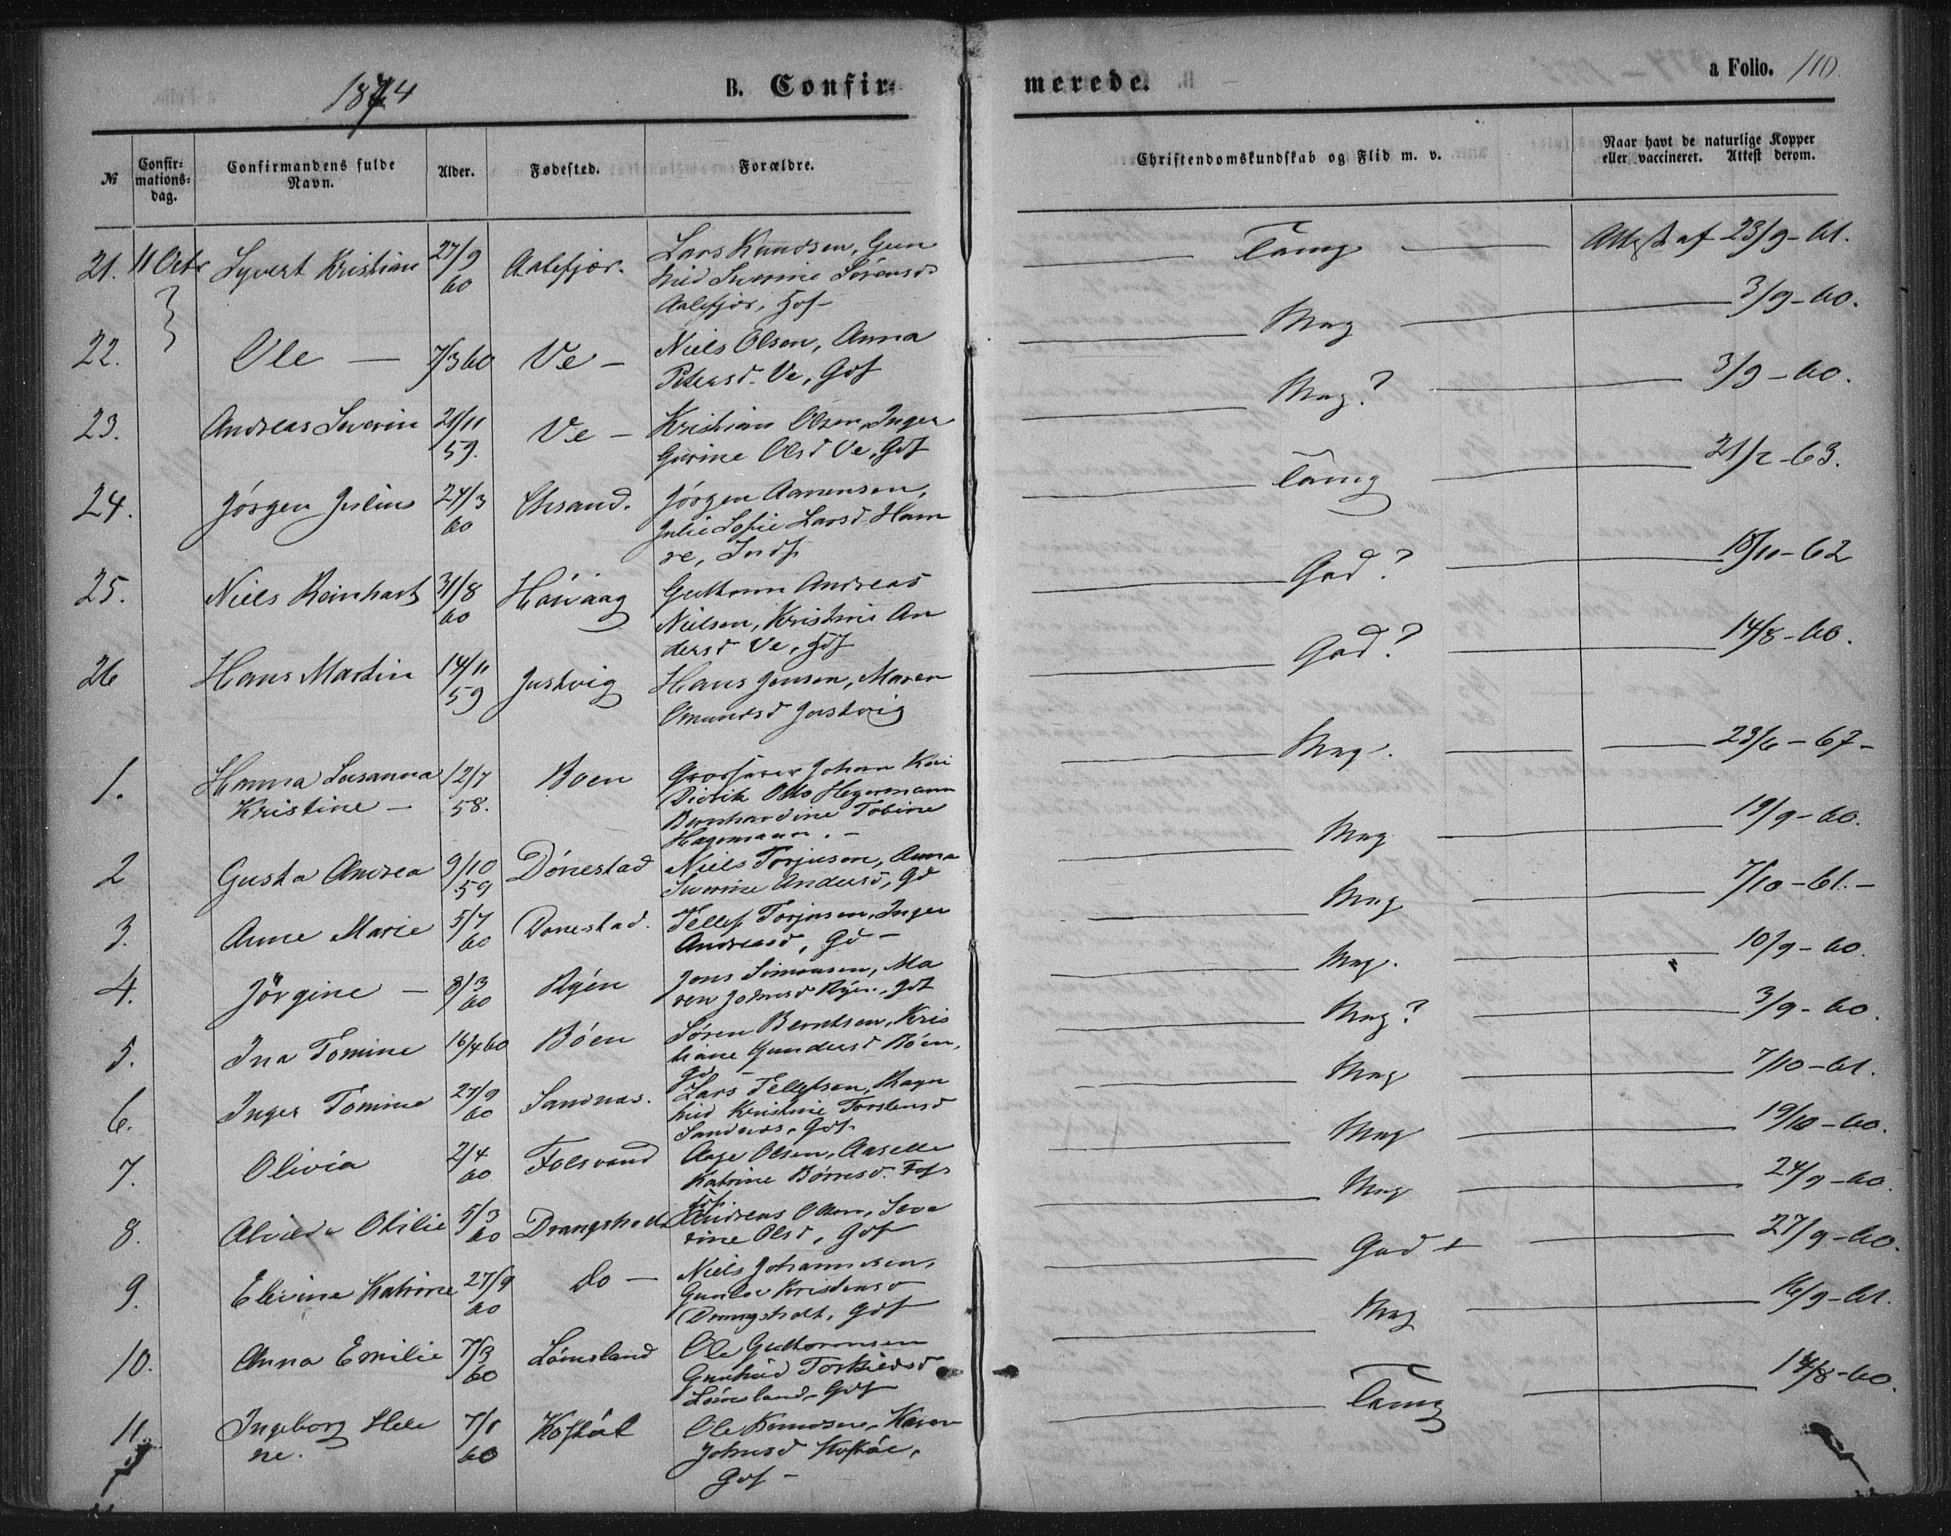 1874
B. Confir-
merede.
a Folio. 110
№
Confir-
mations-
dag.
Confirmandens fulde
Navn.
Alder.
Fødested.
Forældre.
Christendomskundskab og Flid m. v.
Naar havt de naturlige Kopper
eller vaccineret. Attest derom.
21. 11 Octbr Syvert Kristian 27/9 60 Aalefjær. Lars Knudsen, Gun
hild Severine Sørensd
Aalefjær, Gdf Taalig Attest af 23/9-61.
22. Ole 7/3 60 Ve Niels Olsen, Anna
Petersd. Ve, Gdf Mag 3/9-60.
23. Andreas Severin 21/11 59. Ve Kristian Olsen, Inger
Gurine Olsd Ve, Gdf Mag? 3/9-60.
24. Jørgen Julius 24/3 60 Chrsand. Jørgen Aanensen,
Julie Sofie Larsd Ham
re, Indf Taalig 21/2-63.
25. Niels Reinhart 31/8 60 Høivaag Guttorm Andreas
Nielsen, Kristine An
dersd Ve, Gdf God? 18/10-62
26 Hans Martin 14/11 59 Justvig Hans Jensen, Maren
Omundsd Justvig God? 14/8-60.
1. Hanna Susanna
Kristine 12/7 58. Boen Johan
Didrik Otto Hegermann
Bernhardine Tobine
Hagemann. Mag. 23/6-67
2 Gusta Andrea 9/10 59 Dønestad Niels Torjusen, Anna
Severine Andersd, Gd Mag 19/9-60.
3. Anne Marie 5/7 60 Dønestad. Tellef Torjusen, Inger
Andreasd, Gd Mag 7/10-61.
4. Jørgine 8/3 60 Ryen Jens Simonsen, Ma
ren Johnsd Ryen, Gdf Mag. 10/9-60.
5. Ina Tomine 16/4 60 Bøen Søren Berntsen, Kris
tiane Gundersd Bøen,
Gd Mag? 3/9-60.
6. Inger Tomine 27/9 60 Sandnæs. Lars Tellefsen, Ragn
hild Kristine Torstensd
Sandnæs, Gdf Mag 7/10-61.
7. Olivia 2/4 60 Folsvand Aage Olsen, Aaselle
Katrine Børresd. Fols
Gdf. Mag 19/10-60.
8. Alvilde Otilie 5/3 60 Drangsholt Andreas Olsen, Seve
rine Olsd, Gdf Mag 24/9-60.
9. Elevine Katrine 27/9 60 do Niels Johannesen,
Gunlov Kristensd
Drangsholt, Gdf God + 27/9-60.
10. Anna Emilie 7/3 60 Lømsland Ole Guttormsen
Gunhild Torkildsd
Lømsland, Gdf Mag 16/9-61.
11. Ingeborg Hele
ne. 7/1 60 Kostøl Ole Knudsen, Karen
Johnsd Kostøl,
Gdf Taalig 14/8-60.